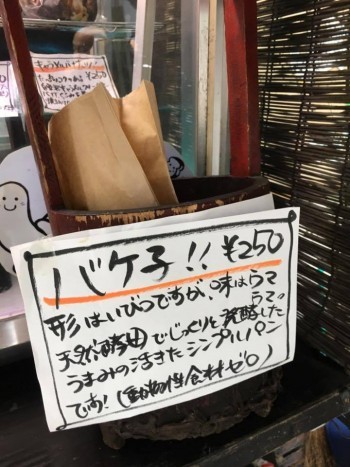 バケ子!! ¥250
形はいびつですが、味はうま
うま。
天然酵母でじっくりと発酵した
うまみの活きたシンプルパン
です!(動物性食材ゼロ)
¥250